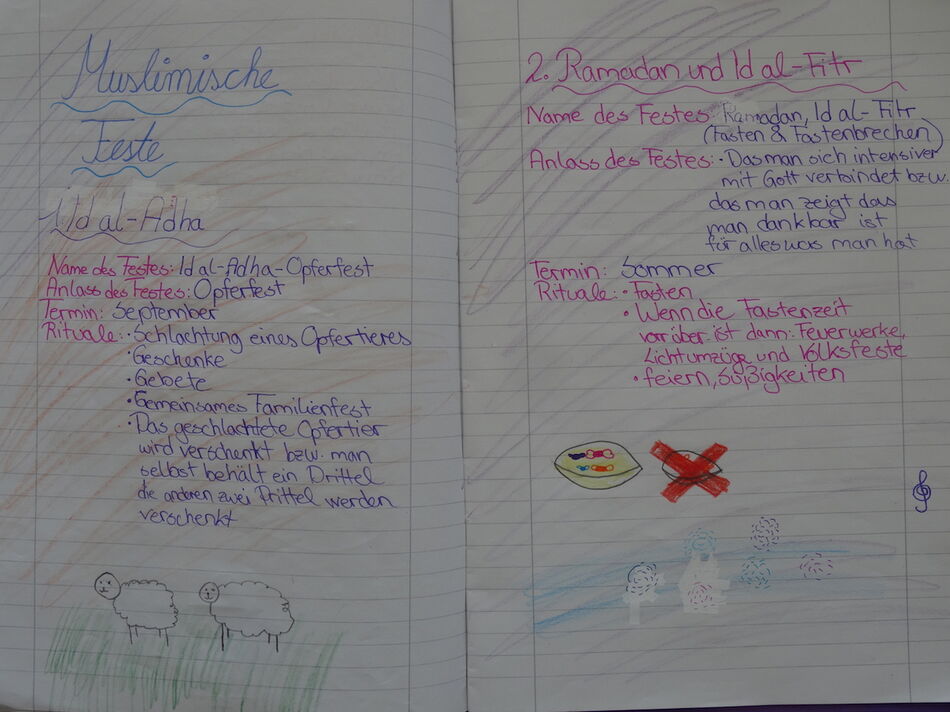 Muslimische
Feste
1. Id al-Adha
Name des Festes: Id al-Adha-Opferfest
Anlass des Festes: Opferfest
Termin: September
Rituale: • Schlachtung eines Opfertieres
• Geschenke
• Gebete
• Gemeinsames Familienfest
• Das geschlachtete Opfertier
wird verschenkt bzw. man
selbst behält ein Drittel
die anderen zwei Drittel werden
verschenkt
2. Ramadan und Id al-Fitr
Name des Festes: Ramadan, Id al-Fitr
(Fasten & Fastenbrechen)
Anlass des Festes: • Das man sich intensiver
mit Gott verbindet bzw.
das man zeigt das
man dankbar ist
für alles was man hat
Termin: Sommer
Rituale: • Fasten
• Wenn die Fastenzeit
vorüber ist dann: Feuerwerke,
Lichtumzüge und Volksfeste
• feiern, Süßigkeiten